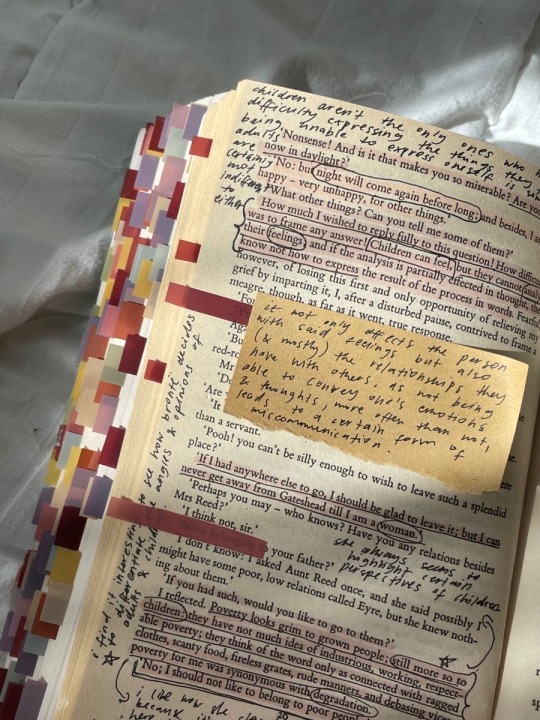 children aren't the only ones who h
difficulty expressing the things they
being unable to express oneself is
adults
are
certainly
not
indifferent
to
either
'Nonsense! And is it that makes you so miserable? Are you
now in daylight?'
'No: but night will come again before long; and besides, I am
happy – very unhappy, for other things.'
'What other things? Can you tell me some of them?'
How much I wished to reply fully to this question! How difficult
was to frame any answer! Children can feel, but they cannot analy
their feelings; and if the analysis is partially effected in thought, the
know not how to express the result of the process in words. Fearful
however, of losing this first and only opportunity of relieving my
grief by imparting it, I, after a disturbed pause, contrived to frame a
meagre, though, as far as it went, true response.
'For
Ag
'Bu
red-ro
Mr
'Do
'Are
'It
than a servant.
it not only affects the person
with said feelings but also
(& mostly) the relationships they
have with others, as not being
able to convey one's emotions
& thoughts, more often than not,
leads to a certain form of
miscommunication.
'Pooh! you can't be silly enough to wish to leave such a splendid
place?'
'If I had anywhere else to go, I should be glad to leave it; but I can
never get away from Gateshead till I am a woman.'
'Perhaps you may – who knows? Have you any relations besides
Mrs Reed?'
'I think not, sir.'
your father?'
I don't know: I asked Aunt Reed once, and she said possibly I
might have some poor, low relations called Eyre, but she knew noth-
ing about them.'
she always seems to
highlight certain
perspectives of children
'If you had such, would you like to go to them?'
I reflected. Poverty looks grim to grown people; still more so to
children: they have not much idea of industrious, working, respect-
able poverty; they think of the word only as connected with ragged
clothes, scanty food, fireless grates, rude manners, and debasing vices:
poverty for me was synonymous with degradation.
'No; I should not like to belong to poor people,'
i find it interesting to see how brontë decides
to differentiate the angles & opinions of
adults & children
i like how she
because
here